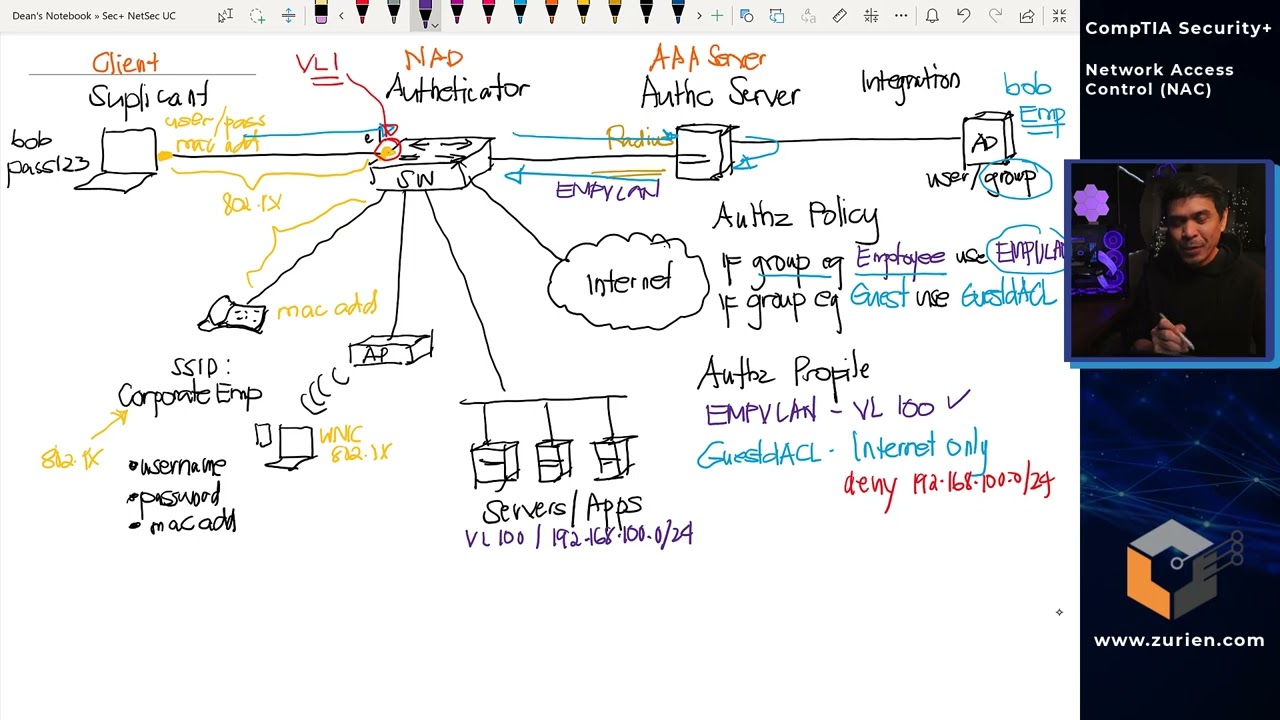 Dean's Notebook » Sec+ NetSec UC
CompTIA Security+
Network Access
Control (NAC)
Client
VL1
NAD
AAA Server
Integration
bob
Emp
Suplicant
Autheticator
Authc Server
user/pass
mac add
bob
pass123
e1
Radius
AD
SW
802.1X
EMPVLAN
user/group
Authz Policy
IF group eq Employee use EMPVLAN
IF group eq Guest use GuestdACL
Internet
mac add
AP
SSID:
Corporate Emp
Authz Profile
EMPVLAN - VL 100 ✓
GuestdACL - Internet only
deny 192.168.100.0/24
WNIC
802.1X
802.1X
• username
• password
• mac add
Servers/Apps
VL 100 / 192.168.100.0/24
www.zurien.com